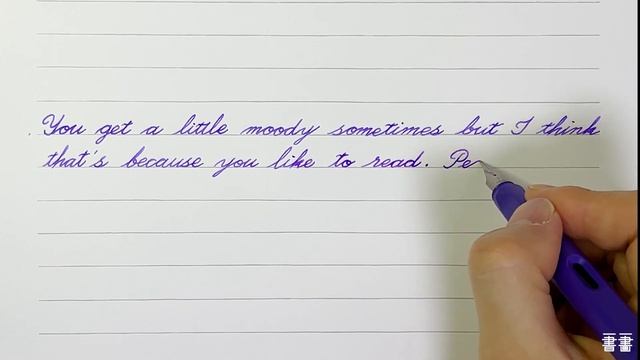 You get a little moody sometimes but I think
that's because you like to read. Pe
書畫